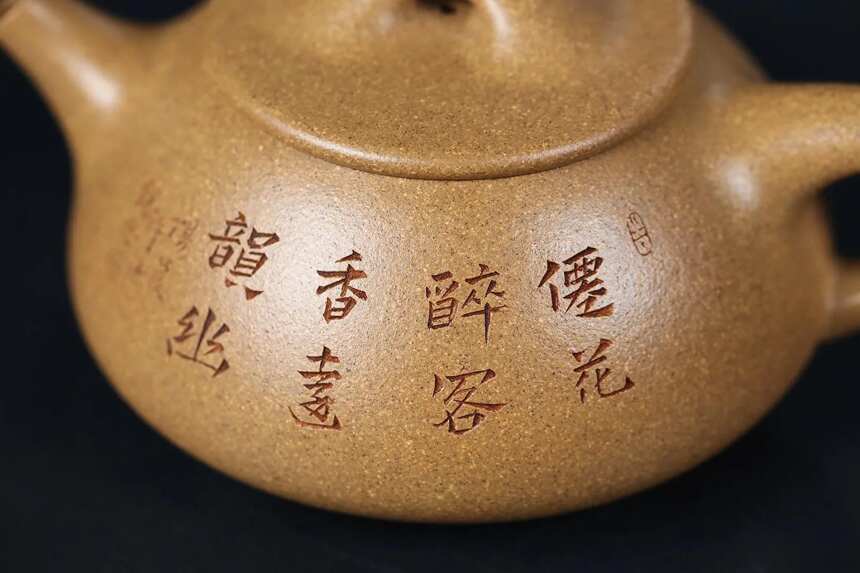 僊花
醉客
香遠
韻幽